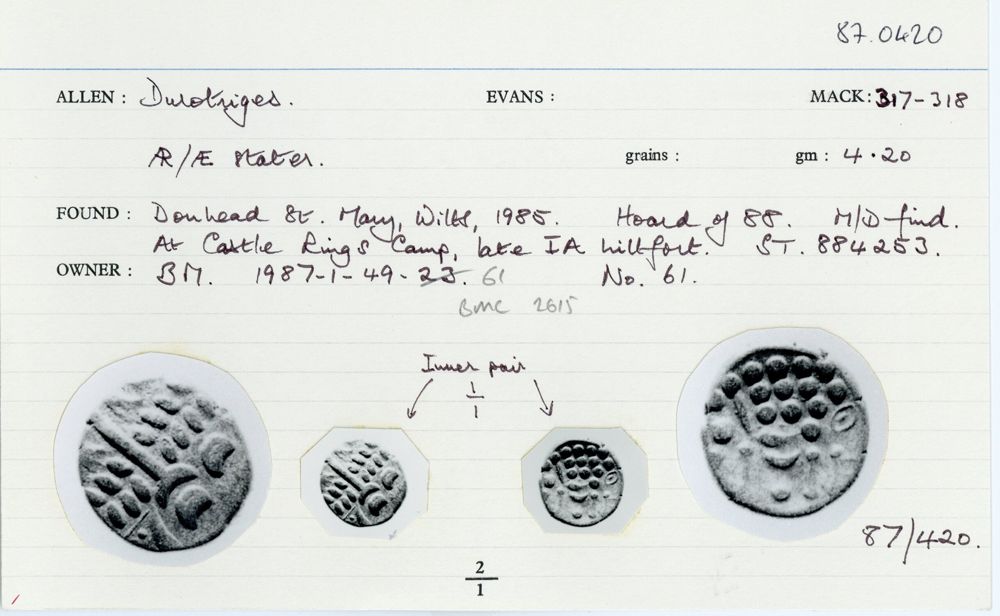 87.0420
ALLEN : Durotriges. EVANS : MACK: 317-318
ÆR/Æ stater. grains : gm : 4.20
FOUND : Donhead St. Mary, Wilts, 1985. Hoard of 88. M/D find.
At Castle Rings Camp, late IA hillfort. ST. 884253.
OWNER : BM. 1987-1-49-23. 61 No. 61.
BMC 2615
Inner pair
1/1
87/420.
2/1